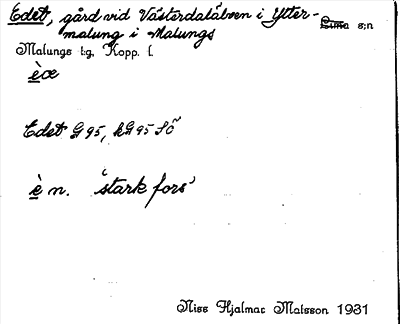 Edet, gård vid Västerdalälven i Ytter-
malung i Malungs ~~Lima~~ s:n
Malungs t:g, Kopp. l.
è̱æ
Edet G 95, kG 95 SÖ
è̱ n. 'stark fors'
Niss Hjalmar Matsson 1931